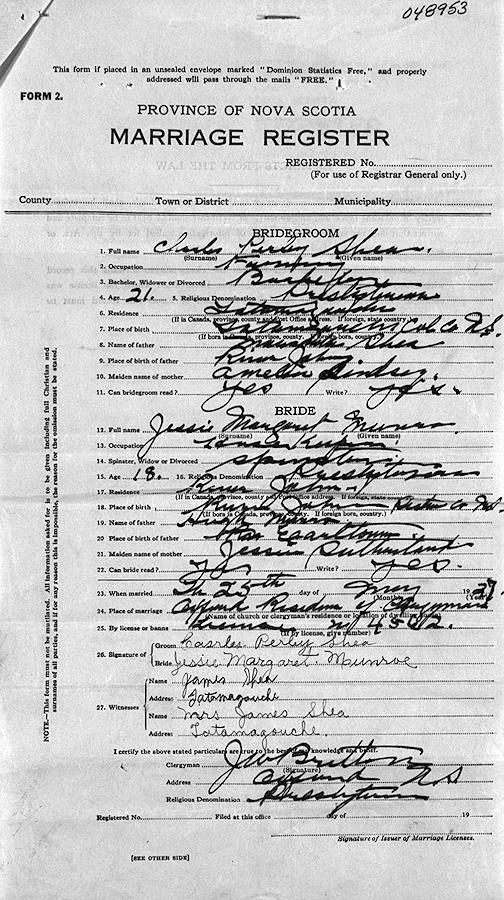 048953
This form if placed in an unsealed envelope marked "Dominion Statistics Free," and properly
addressed will pass through the mails "FREE."
FORM 2.
PROVINCE OF NOVA SCOTIA
MARRIAGE REGISTER
REGISTERED No.
(For use of Registrar General only.)
County Town or District Municipality
BRIDEGROOM
1. Full name Charles Perley Shea.
(Surname) (Given name)
2. Occupation
3. Bachelor, Widower or Divorced Bachelor
4. Age 21. 5. Religious Denomination Presbyterian
6. Residence Tatamagouche
(If in Canada, province, county and Post Office address. If foreign, state country)
7. Place of birth Tatamagouche Col. Co N.S.
(If born in Canada, province, county. If foreign born, country.)
8. Name of father Shea
9. Place of birth of father River John
10. Maiden name of mother Amelia Lindsey.
11. Can bridegroom read? Yes Write? Yes.
BRIDE
12. Full name Jessie Margaret Munro.
(Surname) (Given name)
13. Occupation
14. Spinster, Widow or Divorced Spinster
15. Age 18. 16. Religious Denomination Presbyterian
17. Residence River John
(If in Canada, province, county and Post office address. If foreign, state country)
18. Place of birth River John Pictou Co N.S.
(If born in Canada, province, county. If foreign born, country.)
19. Name of father Hugh Munro
20. Place of birth of father Earltown.
21. Maiden name of mother Jessie Sutherland
22. Can bride read? Yes Write? Yes.
23. When married The 25th day of 1927
(Month)
24. Place of marriage Residence of Clergyman
(Name of church or clergyman's residence or location of dwelling house)
25. By license or banns License No
(If by license, give number)
26. Signature of Groom Charles Perley Shea
Bride Jessie Margaret Munroe
27. Witnesses Name James Shea
Address Tatamagouche
Name Mrs James Shea
Address Tatamagouche.
I certify the above stated particulars are true to the best of my knowledge and belief.
Clergyman J W Britton
(Signature)
Address N.S
Religious Denomination Presbyterian
Registered No. Filed at this office day of 19
Signature of Issuer of Marriage Licenses.
[SEE OTHER SIDE]
NOTE.—This form must not be mutilated. All information asked for is to be given including full Christian and
surnames of all parties, and if for any reason this is impossible, the reason for the omission must be stated.